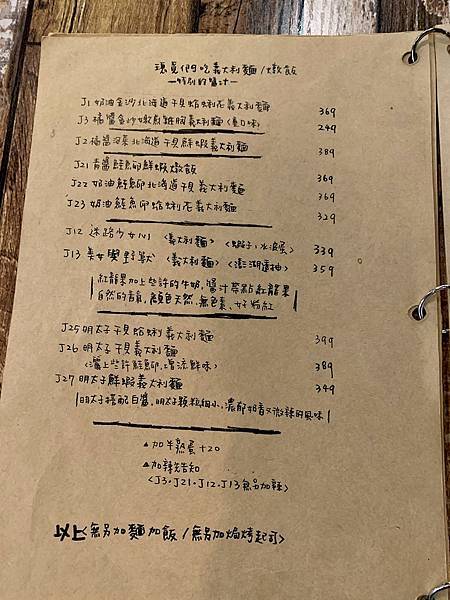 現員們吃義大利麵/燉飯
—特別的醬汁—
J1 奶油金沙北海道干貝蛤蜊花義大利麵 369
J3 橘醬金沙嫩煎雞胸義大利麵(重口味) 249
J2 橘醬泡菜北海道干貝鮮蝦義大利麵 389
J21 青醬鮭魚卵鮮蝦燉飯 369
J22 奶油鮭魚卵北海道干貝義大利麵 369
J23 奶油鮭魚卵蛤蜊花義大利麵 329
J12 迷路少女N1 <義大利麵> <蝦子、水波蛋> 339
J13 美女與野獸 <義大利麵> <澎湖連抽> 359
紅龍果加上些許的牛奶,醬汁帶點紅龍果
自然的香氣,顏色天然、無色素、女好粉紅
J25 明太子干貝蛤蜊義大利麵 399
J26 明太子干貝義大利麵 389
<灑上些許鮭魚卵、增添鮮味>
J27 明太子鮮蝦義大利麵 349
明太子搭配白醬,明太子顆粒細小,濃郁奶香又微辣的風味
▲加半熟蛋+20
▲加辣先告知
<J3、J21、J12、J13無另加辣>
以上<無另加麵加飯/無另加焗烤起司>